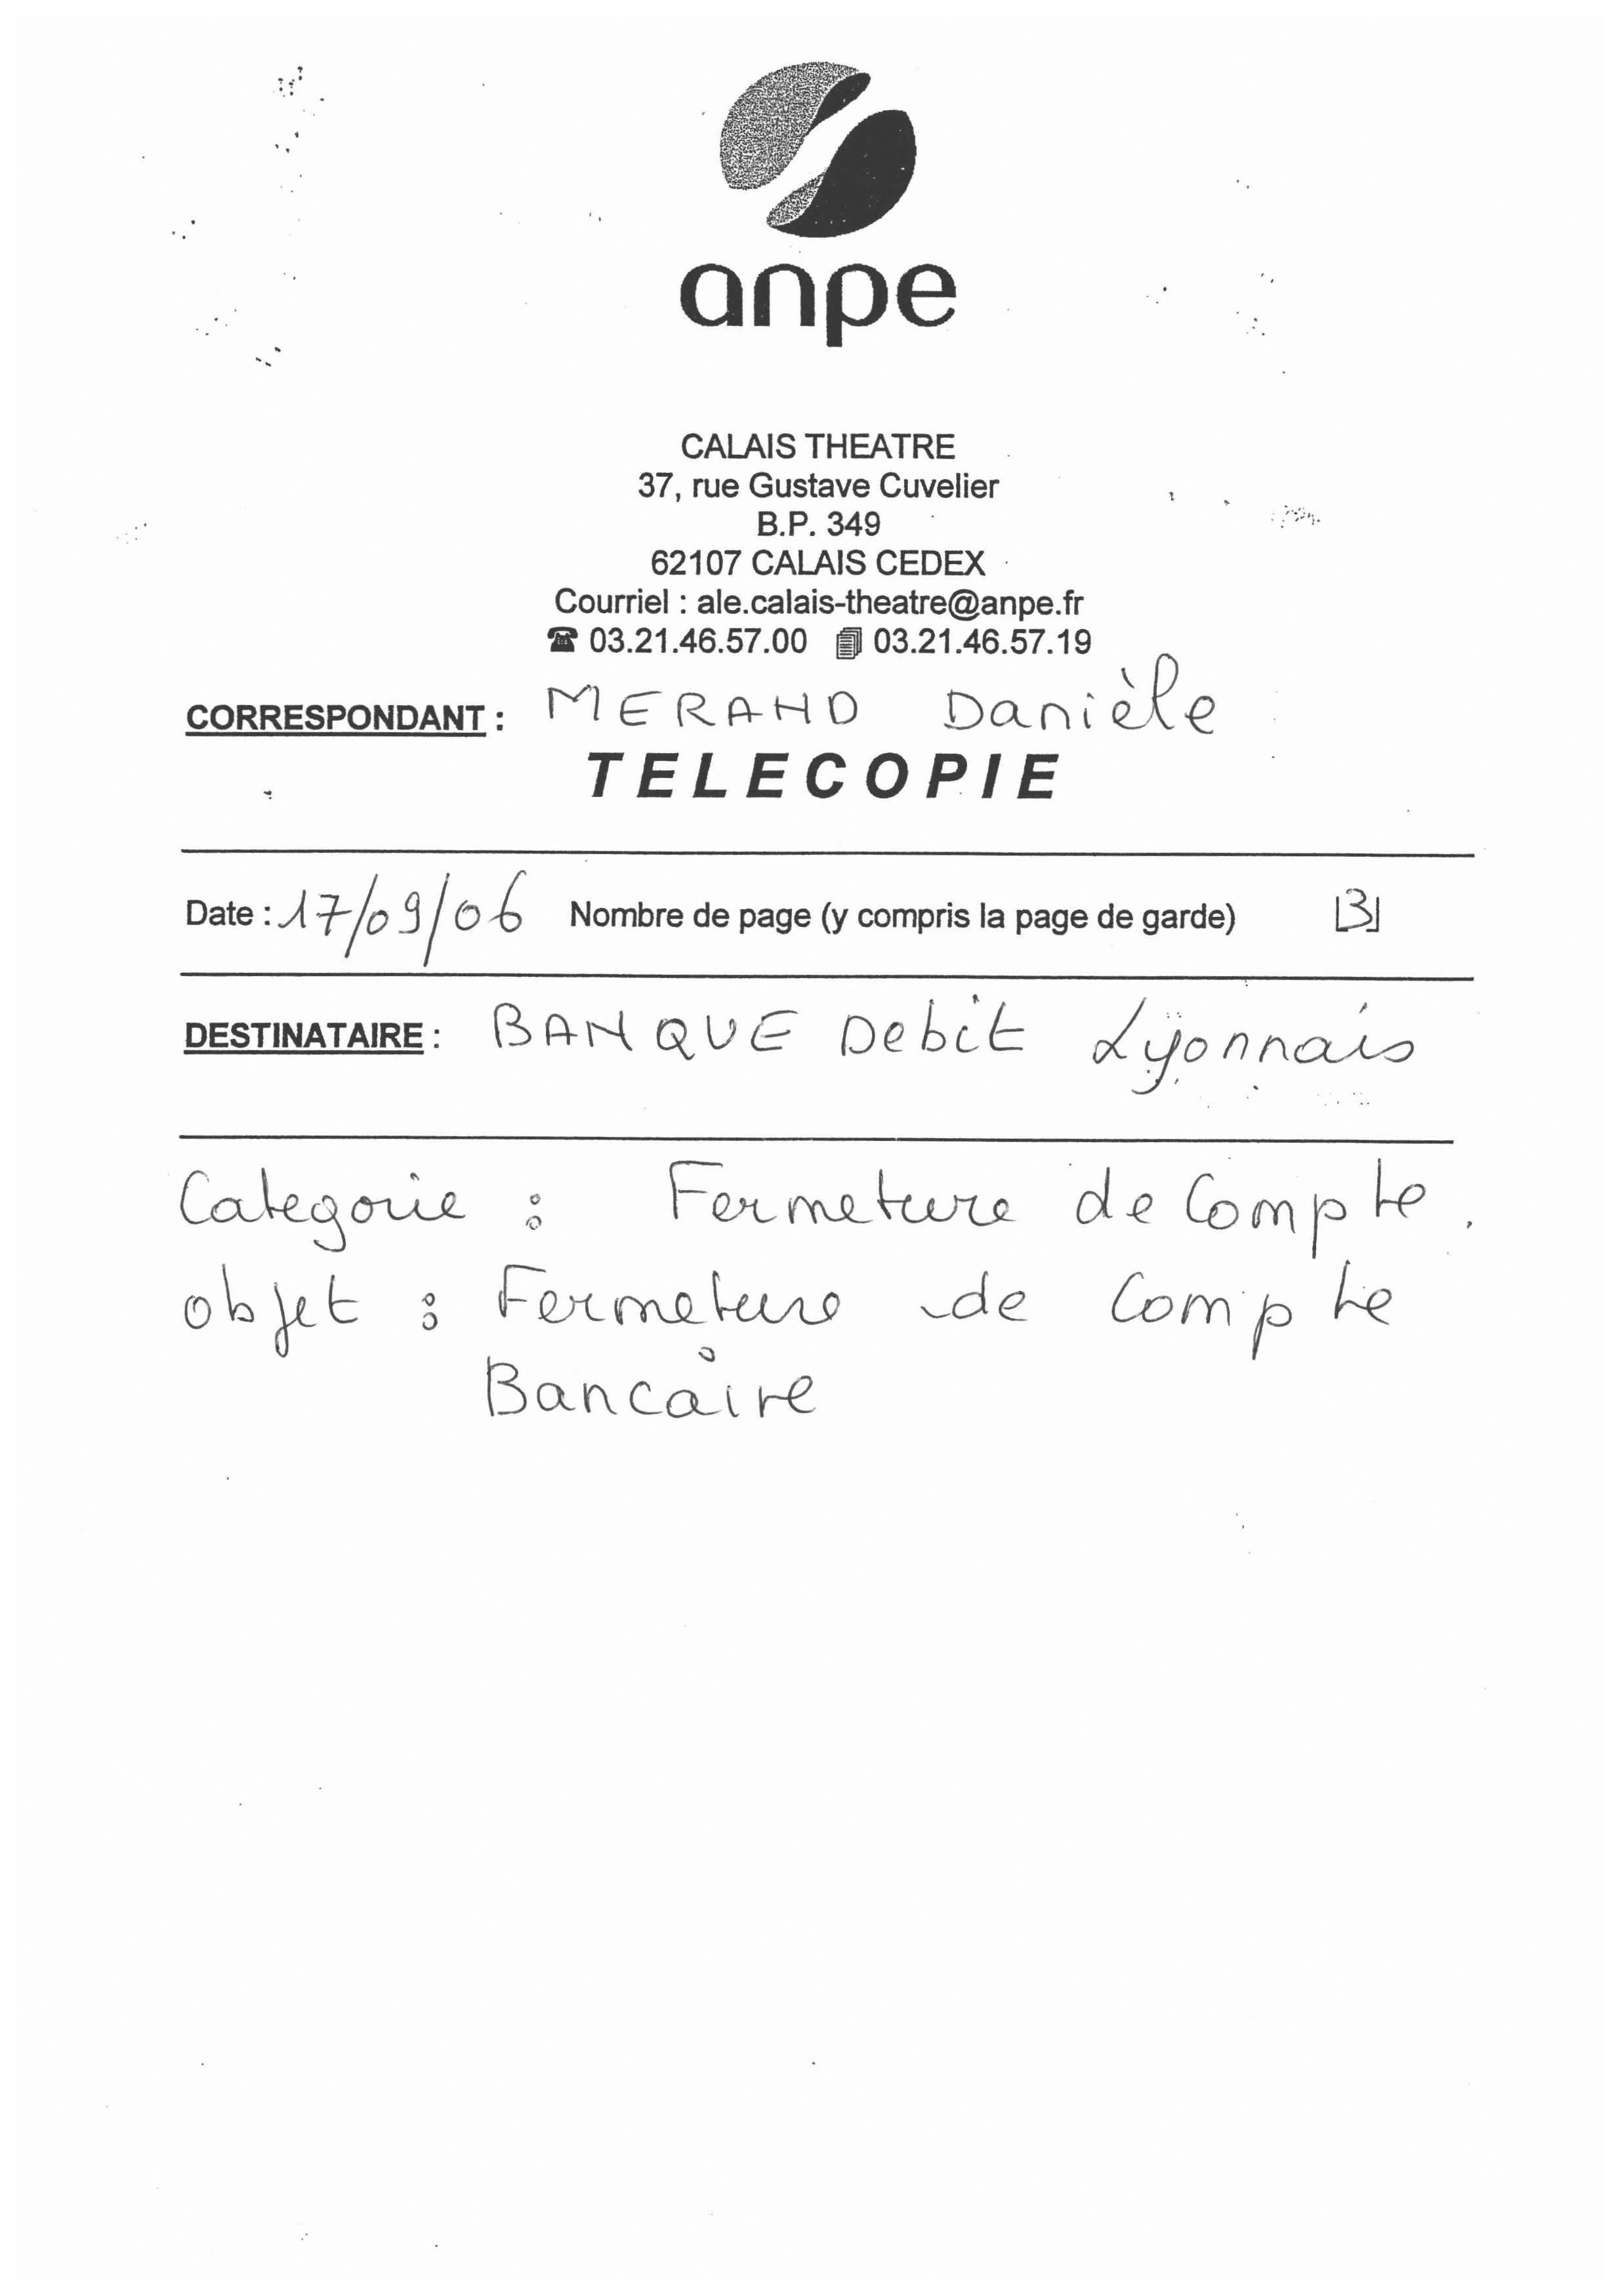 anpe
CALAIS THEATRE
37, rue Gustave Cuvelier
B.P. 349
62107 CALAIS CEDEX
Courriel : ale.calais-theatre@anpe.fr
03.21.46.57.00 03.21.46.57.19
CORRESPONDANT : MERAND Danièle
TELECOPIE
Date : 17/09/06 Nombre de page (y compris la page de garde) 3
DESTINATAIRE : BANQUE Debit Lyonnais
Categorie : Fermeture de Compte.
objet : Fermeture de Compte
Bancaire